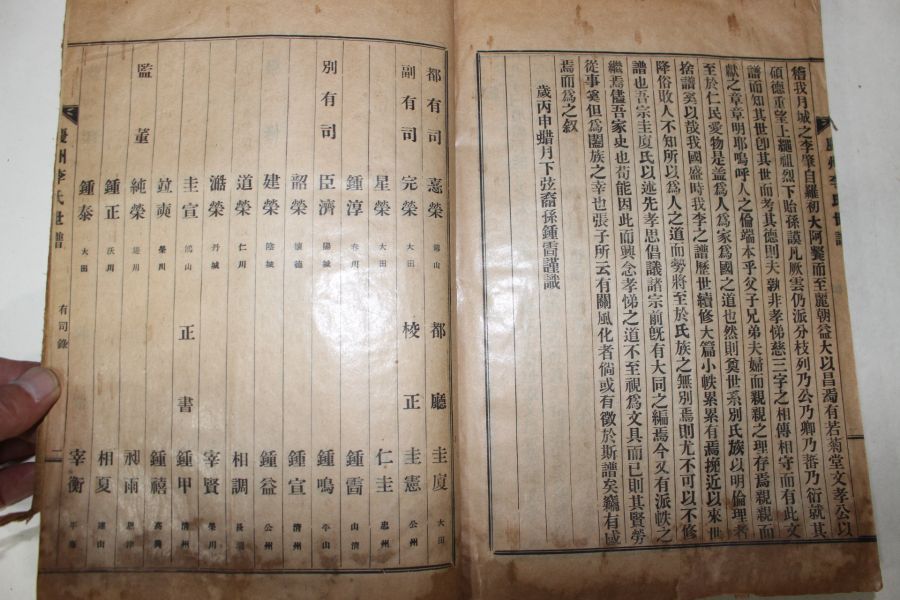 稽我月城之李肇自羅初大阿飡而至麗朝益大以昌濁有若菊堂文孝公以
碩德重望上繩祖烈下貽孫謨凡厥雲仍派分枝列乃公乃卿乃蕃乃衍就其
譜而知其世卽其世而考其德則夫孰非孝悌慈三字之相傳相守而有此文
獻之章章明耶嗚呼人之倫端本乎父子兄弟夫婦而親親之理存焉親親而
至於仁民愛物是盖爲人爲家爲國之道也然則奠世系別氏族以明倫理者
捨譜奚以哉我國盛時我李之譜歷世續修大篇小帙累累有焉挽近以來世
降俗敗人不知所以爲人之道而勞將至於氏族之無別焉則尤不可以不修
譜也吾宗圭廈氏以述先孝思倡議諸宗前旣有大同之編焉今又有派帙之
繼焉儘吾家史也苟能因此而興念孝悌之道不至視爲文具而已則其賢勞
從事奚但爲闔族之幸也張子所云有關風化者倘或有徵於斯譜矣編有
焉而爲之叙
歲丙申蜡月下弦裔孫鍾雷謹識
都有司 憙榮 都廳 圭廈 大田
副有司 完榮 大田 校正 圭憲 公州
星榮 大田 仁圭 忠州
鍾淳 鍾雷
別有司 臣濟 鍾鳴
韶榮 鍾宣 清州
建榮 陰城 鍾益 公州
道榮 仁川 相調
澔榮 丹城 宰賢
圭宣 正書 鍾甲 清州
竝奭 鍾禧
監董 純榮 雨
鍾正 相夏
鍾泰 大田 宰衡
慶州李氏世譜 有司錄 二